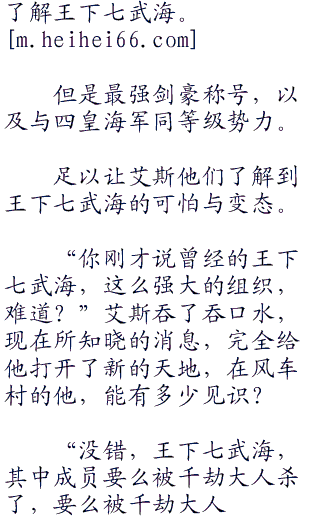 了解王下七武海。
[m.heihei66.com]
但是最强剑豪称号，以
及与四皇海军同等级势力。
足以让艾斯他们了解到
王下七武海的可怕与变态。
“你刚才说曾经的王下
七武海，这么强大的组织，
难道？”艾斯吞了吞口水，
现在所知晓的消息，完全给
他打开了新的天地，在风车
村的他，能有多少见识？
“没错，王下七武海，
其中成员要么被千劫大人杀
了，要么被千劫大人